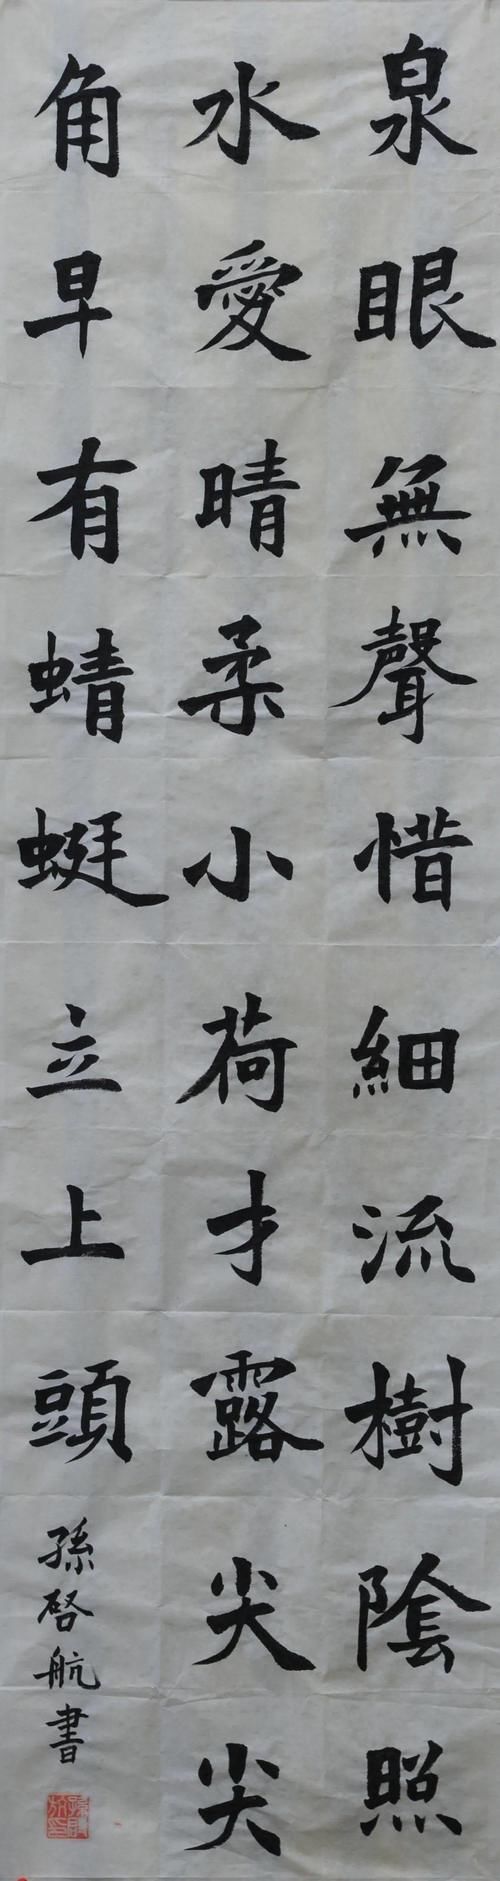 泉眼無聲惜細流樹陰照
水愛晴柔小荷才露尖尖
角早有蜻蜓立上頭
孫啓航書